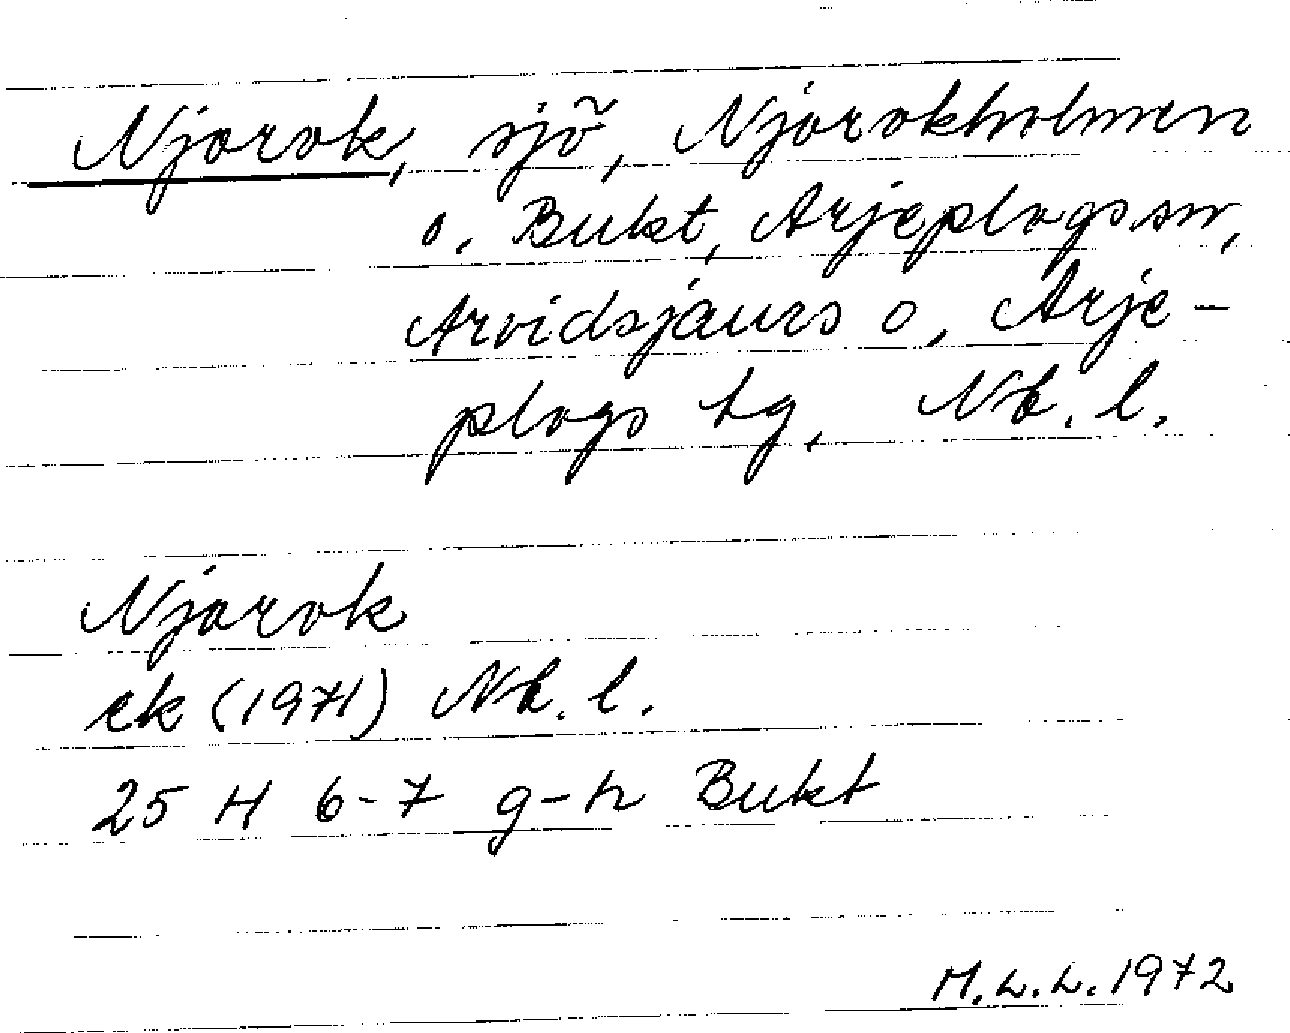 Njarok, sjö, Njarokholmen
o. Bukt, Arjeplogs sn,
Arvidsjaurs o, Arje-
plogs tg, Nb. l.
Njarok
ek (1971) Nb. l.
25 H 6-7 g-h Bukt
M.L.L. 1972